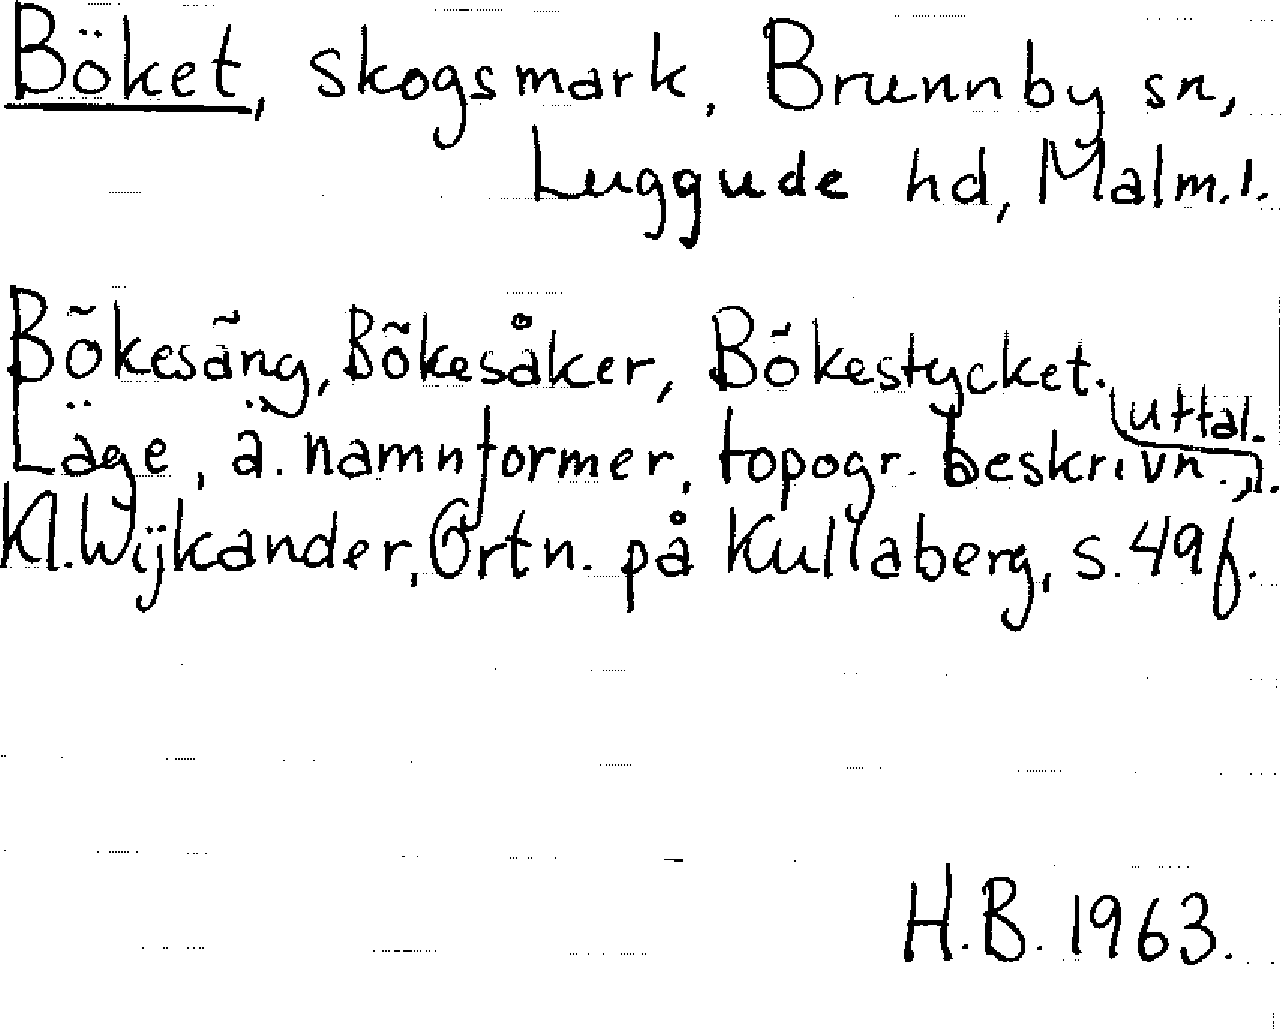 Böket, skogsmark, Brunnby sn,
Luggude hd, Malm.l.
Bökesäng, Bökesåker, Bökestycket.
Läge, ä. namnformer, topogr. beskrivn., uttal.
Kl. Wijkander, Ortn. på Kullaberg, s. 49f.
H.B. 1963.